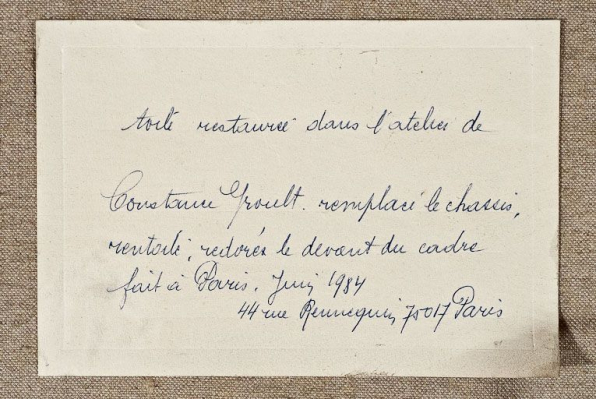 toile restaurée dans l'atelier de
Constance Groult. remplacé le chassis,
rentoilé, redorés le devant du cadre
fait à Paris. Juin 1984
44 rue Rennequin 75017 Paris